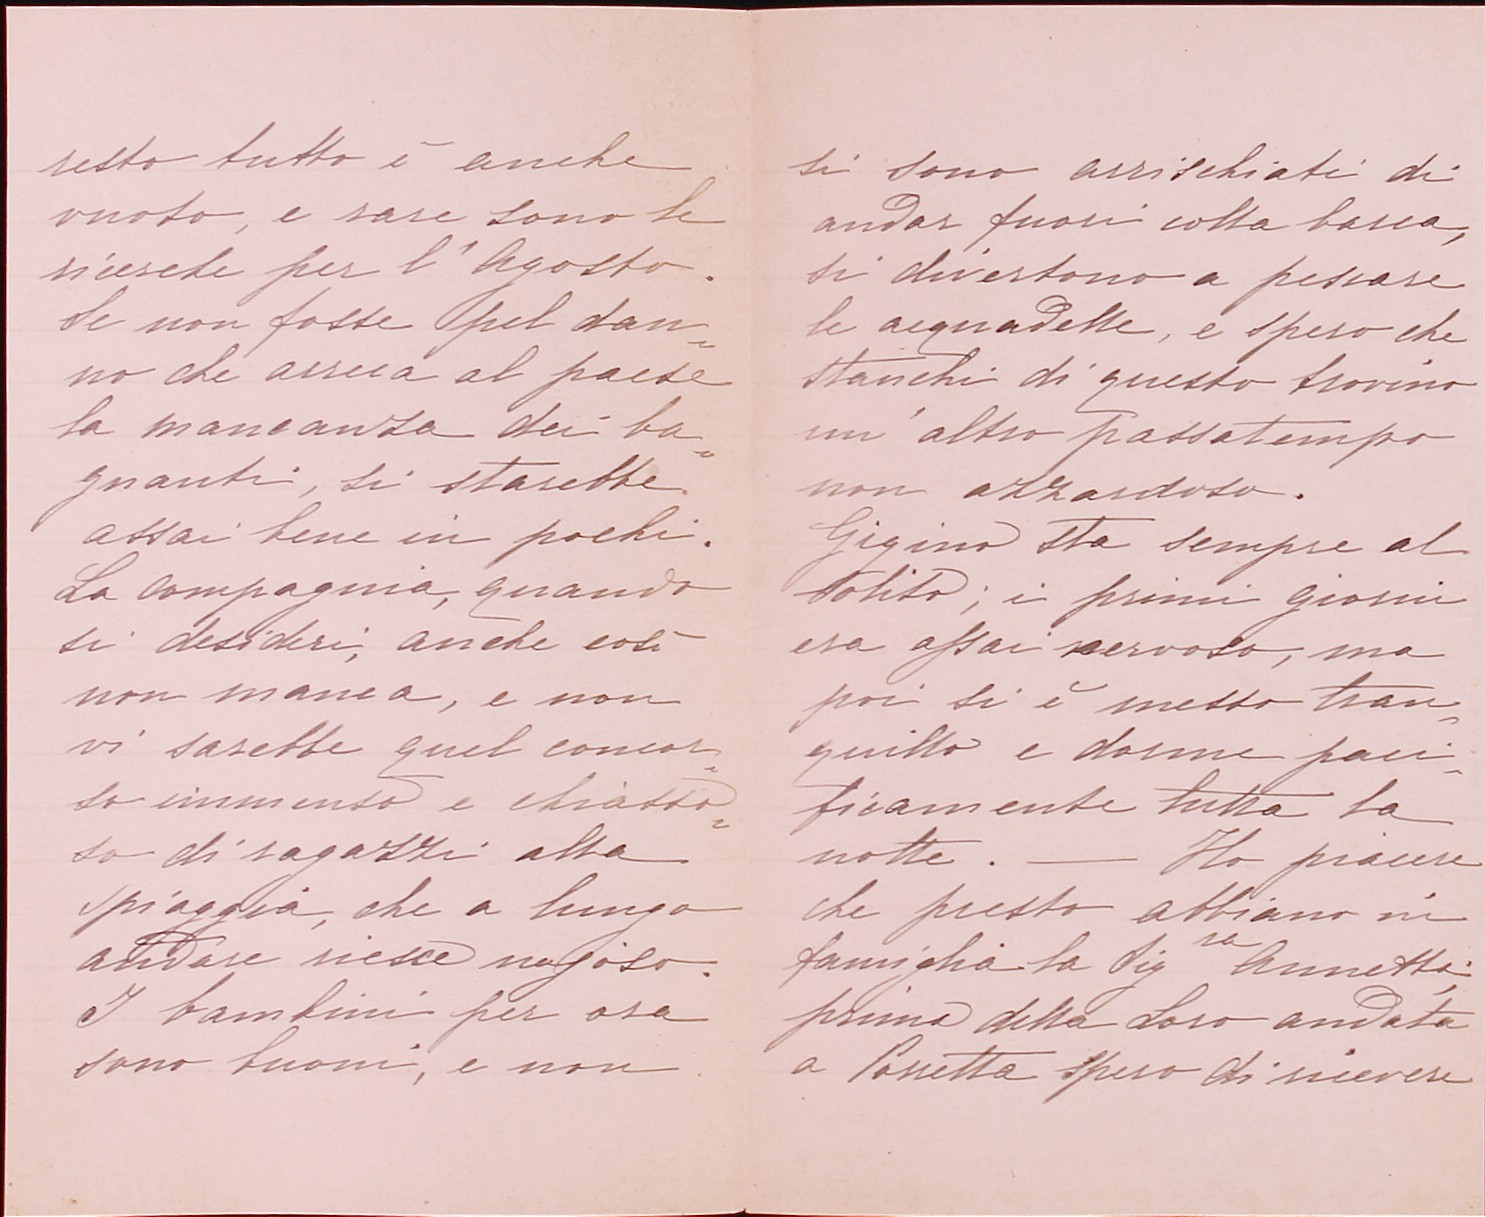 resto tutto è anche
vuoto, e rare sono le
ricerche per l'Agosto.
Se non fosse pel dan=
no che arreca al paese
la mancanza dei ba=
gnanti, si starebbe
assai bene in pochi.
La compagnia, quando
si desideri, anche così
non manca, e non
vi sarebbe quel concor=
so immenso e chiasso=
so di ragazzi alla
spiaggia, che a lungo
andare riesce nojoso.
I bambini per ora
sono buoni, e non
si sono arrischiati di
andar fuori colla barca,
si divertono a pescare
le acquadelle, e spero che
stanchi di questo trovino
un'altro passatempo
non azzardoso.
Gigino sta sempre al
solito; i primi giorni
era assai nervoso, ma
poi si è messo tran=
quillo e dorme paci=
ficamente tutta la
notte. — Ho piacere
che presto abbiano in
famiglia la Sig.ra Annetta;
prima della Loro andata
a Porretta spero di ricevere